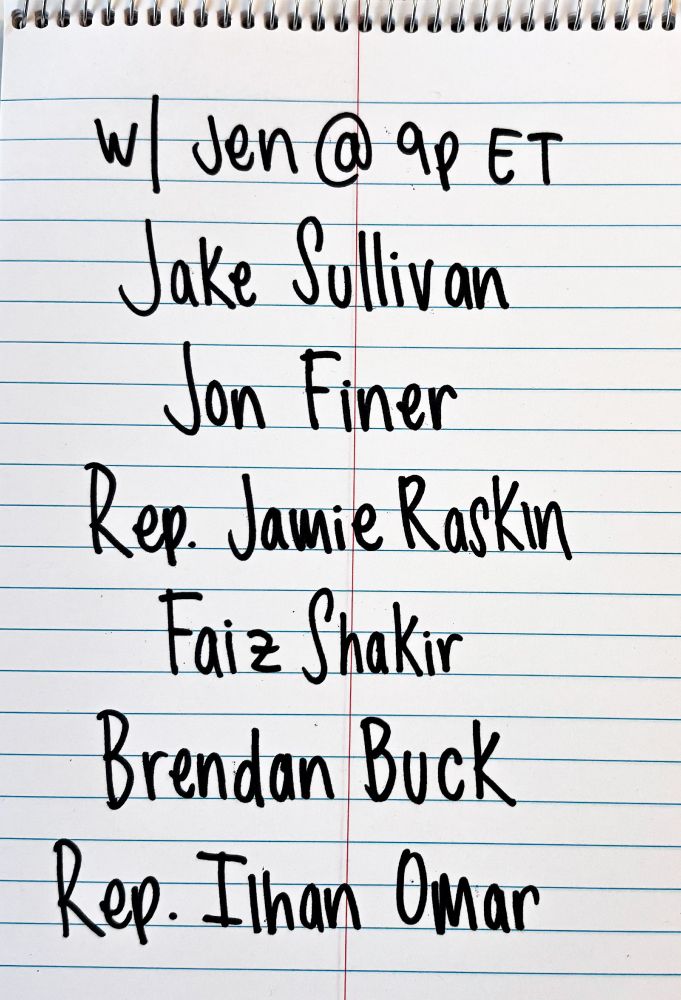 w/ Jen @ 9p ET
Jake Sullivan
Jon Finer
Rep. Jamie Raskin
Faiz Shakir
Brendan Buck
Rep. Ilhan Omar